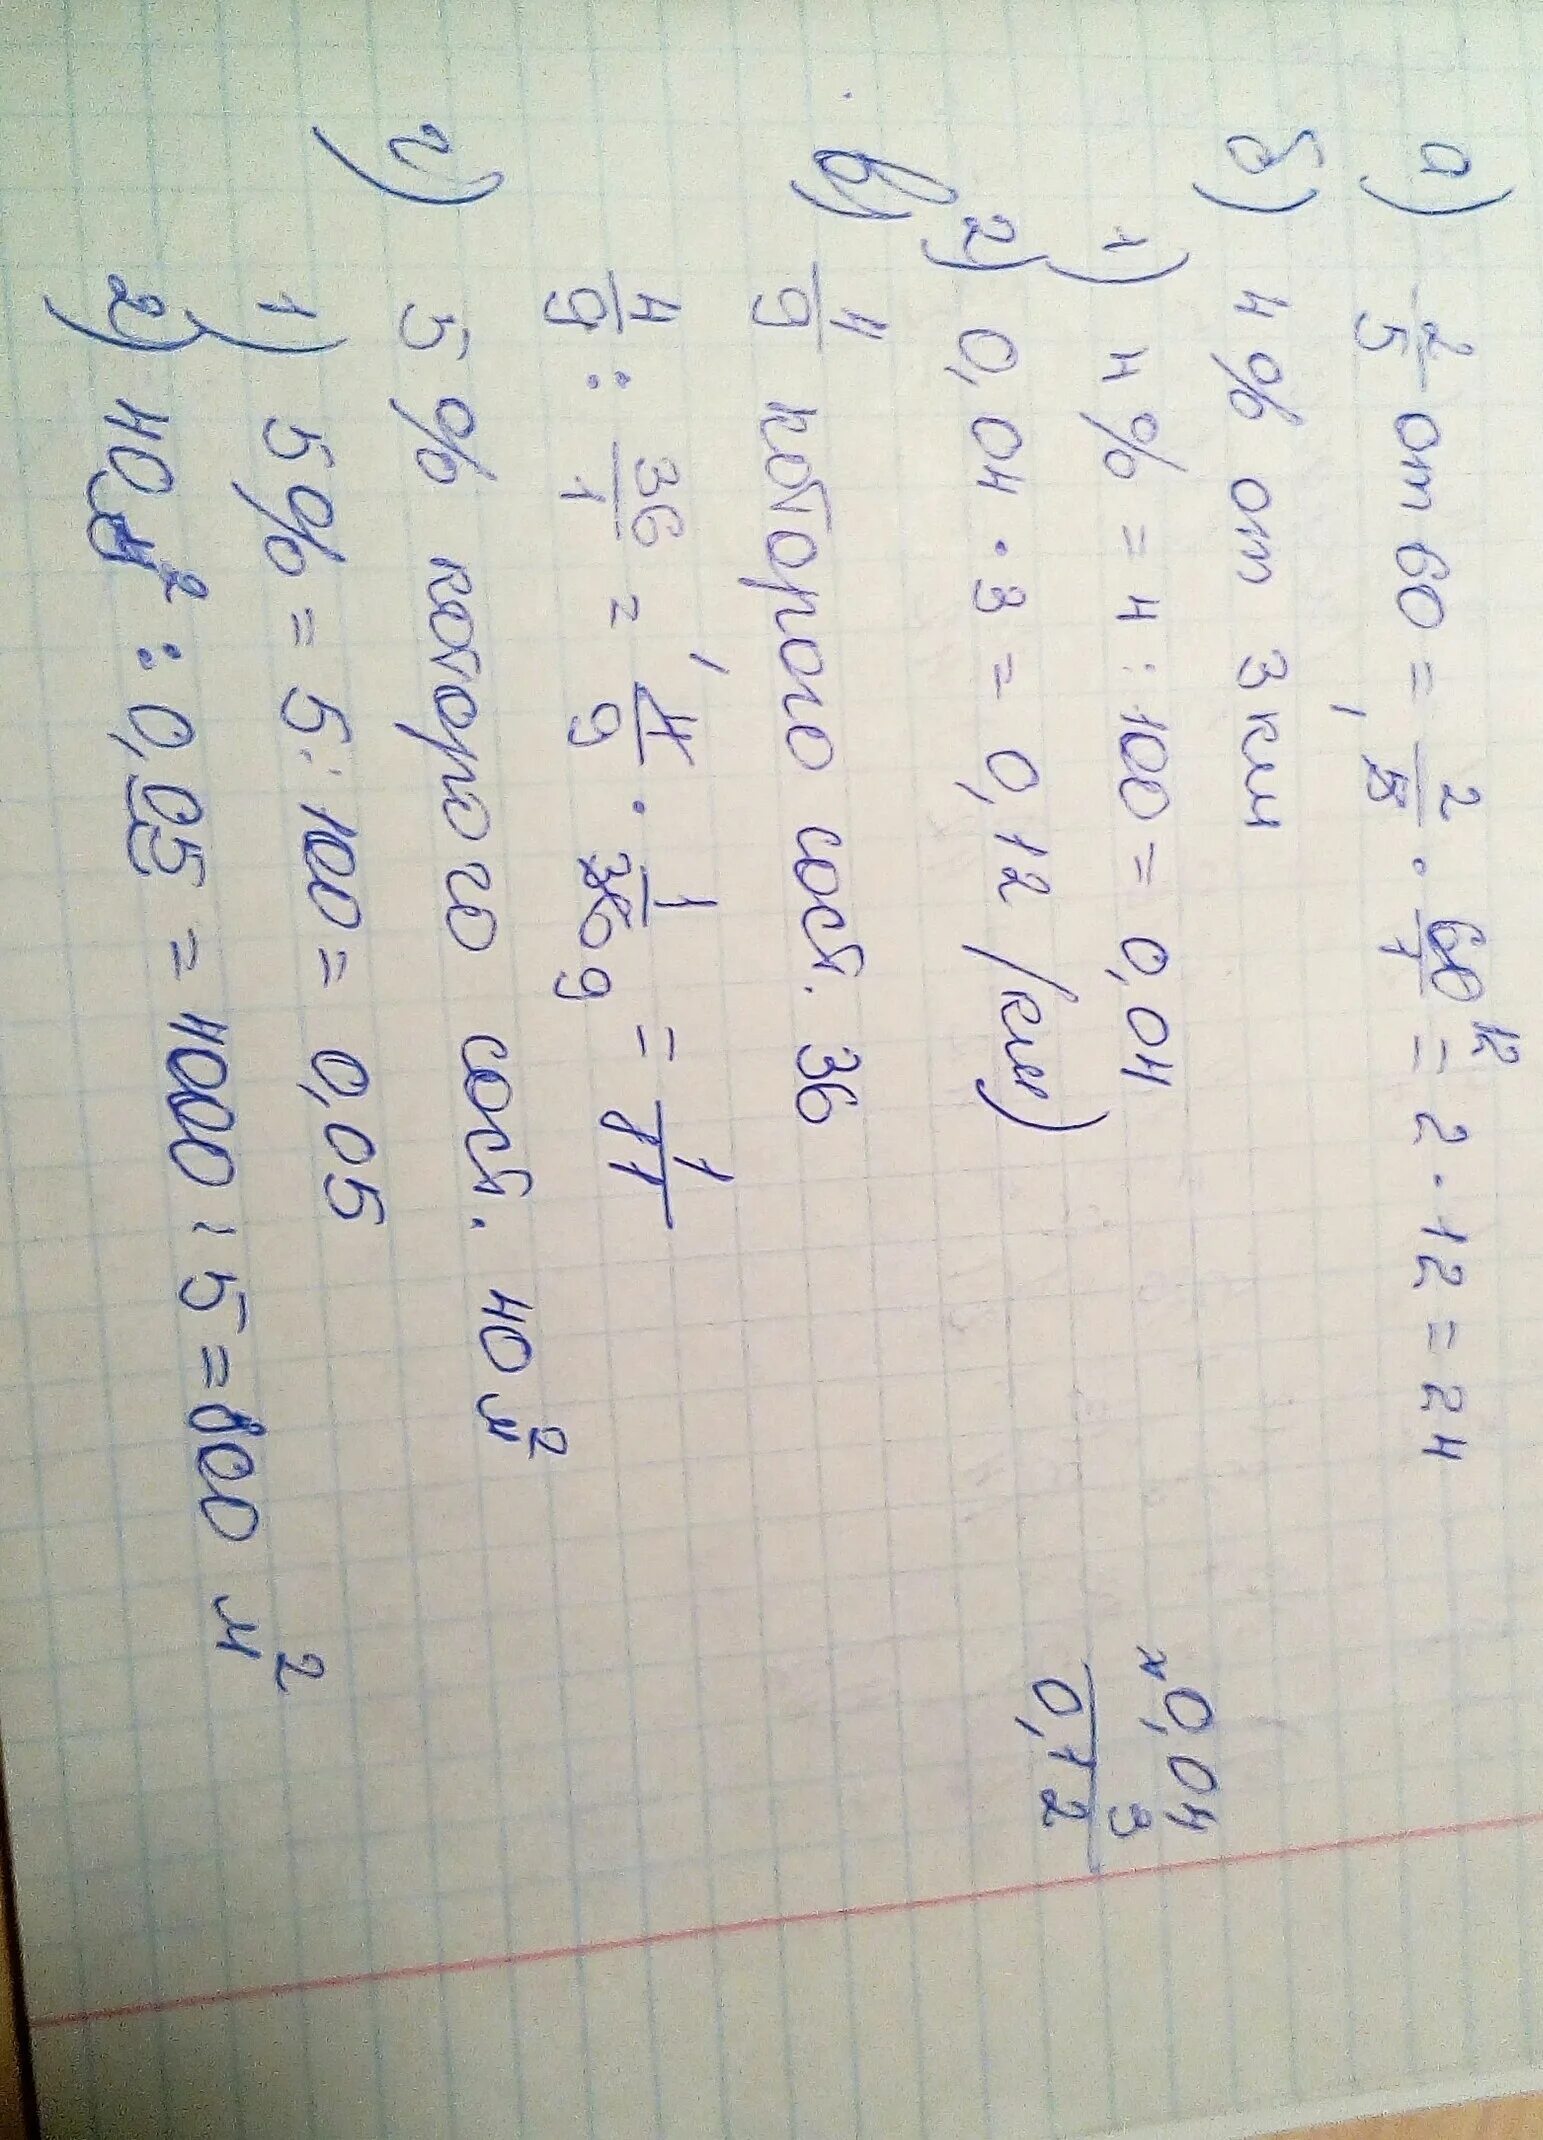 а) 2/5 от 60 = 2/5 · 60/1 = 2 · 12 = 24
б) 4% от 3 км
1) 4% = 4 : 100 = 0,04
2) 0,04 · 3 = 0,12 (км)
×0,04
3
0,12
в) 4/9 которого сост. 36
4/9 : 36/1 = 4/9 · 1/36 =
г) 5% которого сост. 40 м²
1) 5% = 5 : 100 = 0,05
2) 40 м² : 0,05 = 4000 : 5 = 800 м²